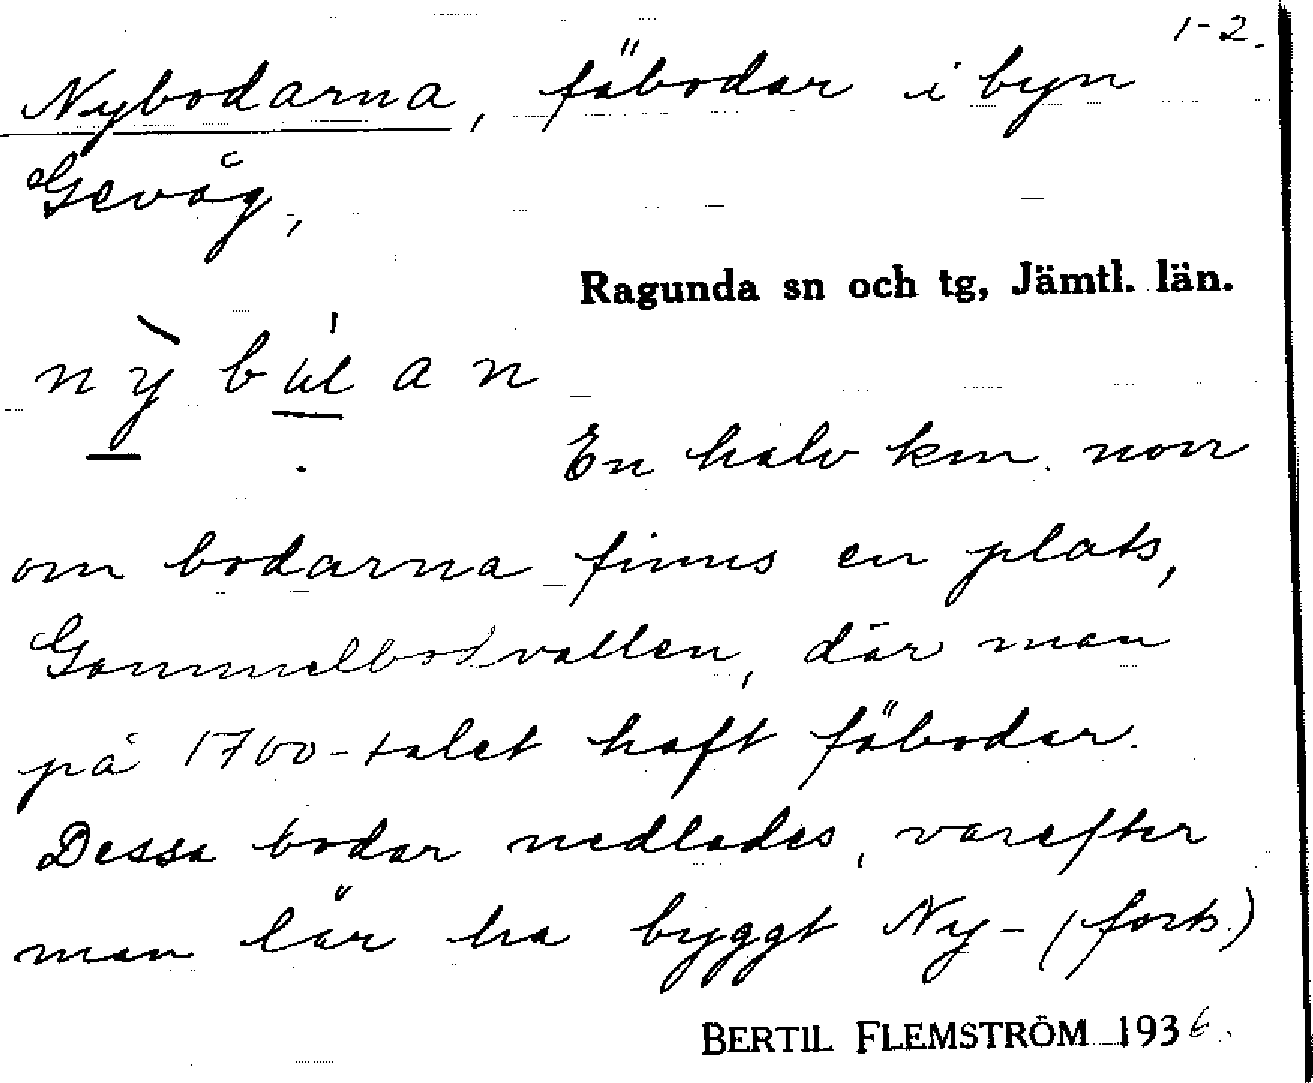 1-2.
Nybodarna, fäbodar i byn
Gevåg,
Ragunda sn och tg, Jämtl. län.
En halv km. norr
om bodarna finns en plats,
Gammelbodvallen, där man
på 1700-talet haft fäbodar.
Dessa bodar nedlades, varefter
man lär ha byggt Ny- (forts.)
BERTIL FLEMSTRÖM 1936.